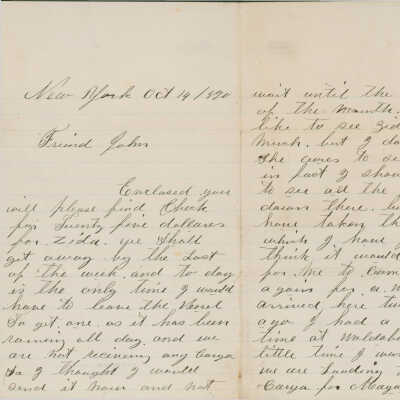 New York Oct 19/1890
Freind John
Enclosed you
will please find Check
for Twenty five dollares
for Zida. we shall
get away by the Last
of the week and to day
is the only time I would
have to leave the Vesel
to get one, as it has been
raining all day and we
are not recieving any Cargo
so I thought I would
send it now and not
wait until the
of the month.
like to see Zid
much. but I do
she cares to se
in fact I shou
to see all the
down there. bu
have taken th
which I have
think it would
for me to Com
again for a
arrived here tw
ago I had a
time at Waldobo
little time I was
we are Loading
Cargo for Mayag